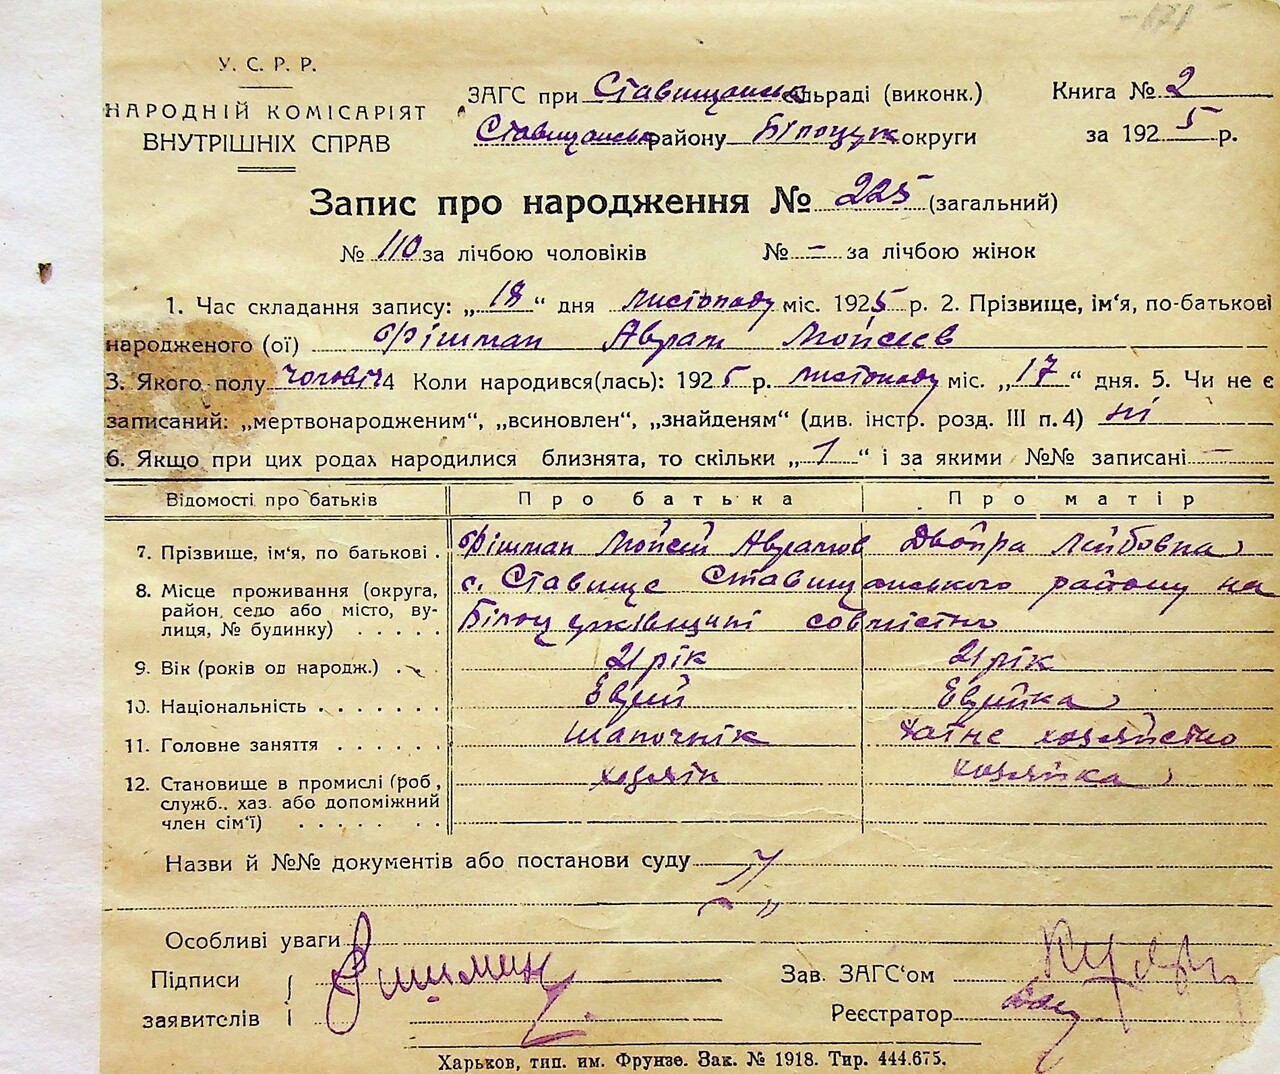 У. С. Р. Р.
НАРОДНІЙ КОМІСАРІЯТ
ВНУТРІШНІХ СПРАВ
ЗАГС при Ставищанськ сільраді (виконк.)
Ставищанськ району Білоцерк округи
Книга № 2
за 1925 р.
Запис про народження № 225 (загальний)
№ 110 за лічбою чоловіків № – за лічбою жінок
1. Час складання запису: „18“ дня листопаду міс. 1925 р. 2. Прізвище, ім'я, по-батькові
народженого (ої) Фішман Аврам Мойсеєв
3. Якого полу чоловіч 4 Коли народився(лась): 1925 р. листопаду міс. „17“ дня. 5. Чи не є
записаний: „мертвонародженим“, „всиновлен“, „знайденям“ (див. інстр. розд. III п. 4) ні
6. Якщо при цих родах народилися близнята, то скільки „1“ і за якими №№ записані –
Відомості про батьків Про батька Про матір
7. Прізвище, ім'я, по батькові . Фішман Мойсей Аврамов Двойра Лейбовна
8. Місце проживання (округа, район, село або місто, вулиця, № будинку) . . . . . с. Ставище Ставищанського району на
Білоцерківщині совместно
9. Вік (років од народж.) . . 21 рік 21 рік
10. Національність . . . . . . . Еврей Еврейка
11. Головне заняття . . . . . . Шапочнік Хатне хозяйство
12. Становище в промислі (роб, служб., хаз. або допоміжний член сім'ї) . . . . . . . хозяін хозяйка
Назви й №№ документів або постанови суду
Особливі уваги
Підписи
заявителів
Фишман
Зав. ЗАГС'ом
Реєстратор
Харьков, тип. им. Фрунзе. Зак. № 1918. Тир. 444.675.